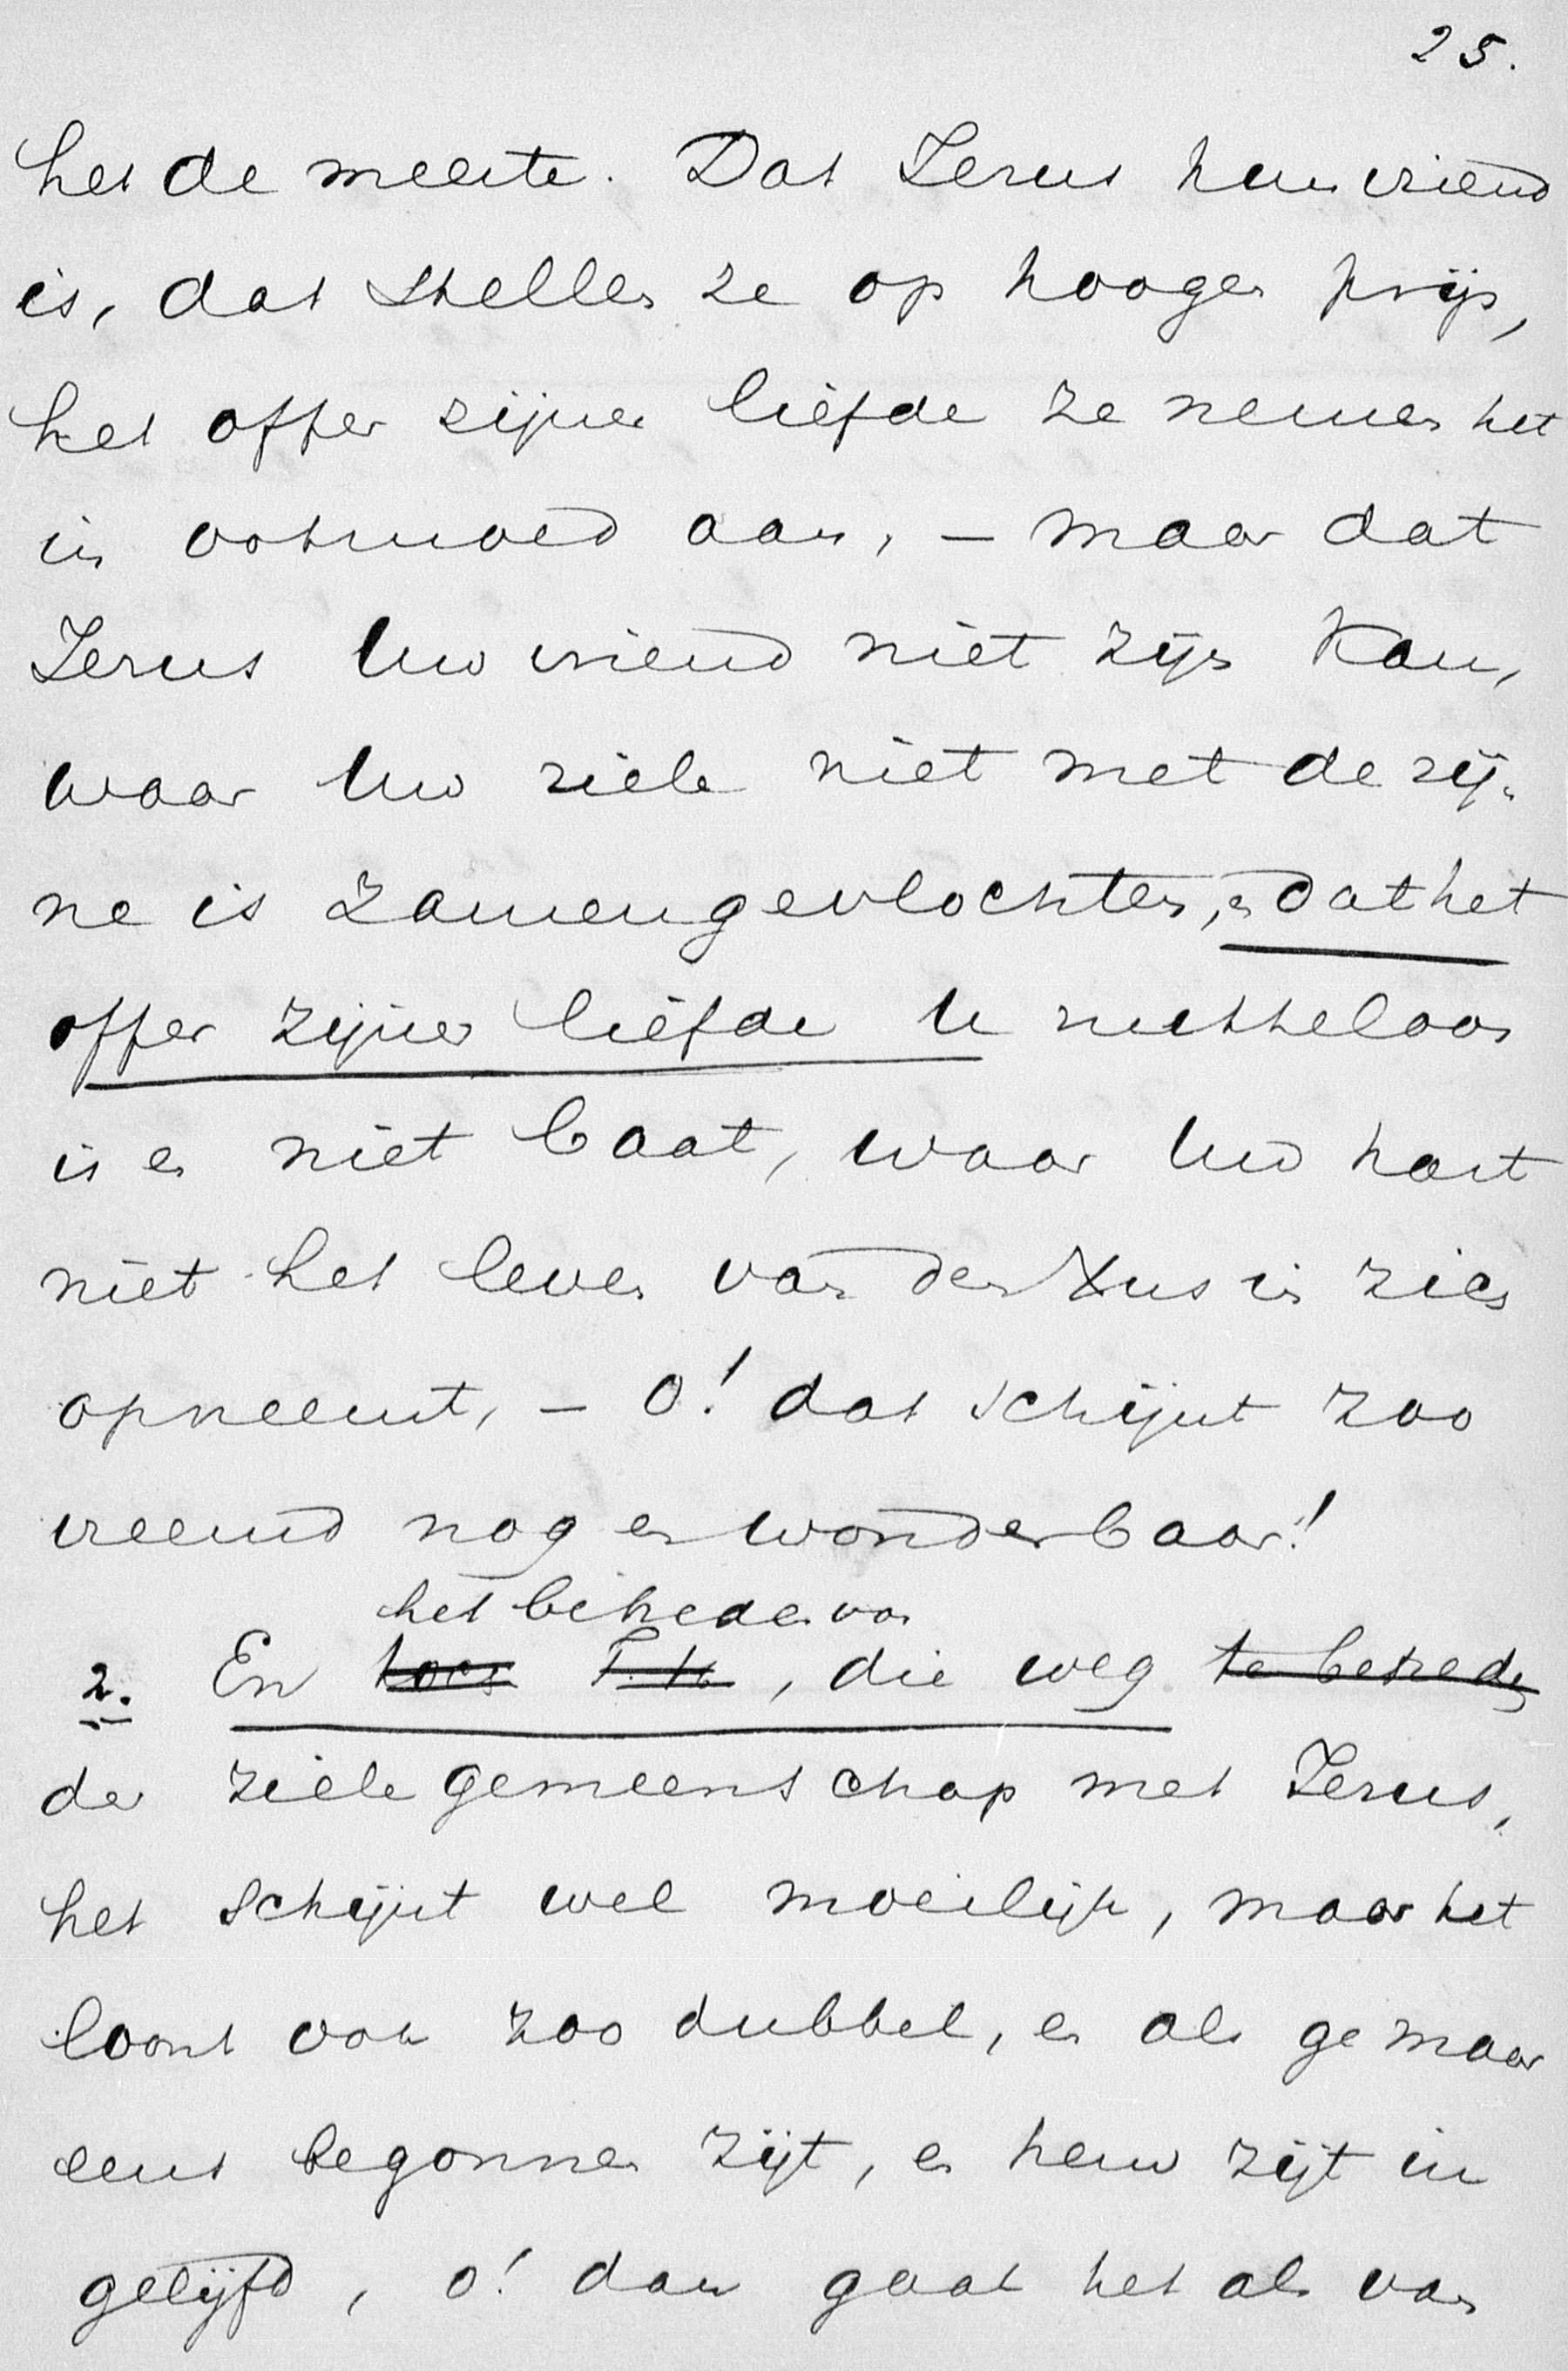 25.
het de meeste. Dat Jezus hun vriend
is, dat stellen ze op hoogen prijs,
het offer zijner liefde ze nemen het
in ootmoed aan, – maar dat
Jezus Uw vriend niet zijn kan,
waar Uw ziele niet met de zij-
ne is zamengevlochten, en dat het
offer zijner liefde U nutteloos
is en niet baat, waar Uw hart
niet het leven van den Xtus in zich
opneemt, – O! dat schijnt zoo
vreemd nog en wonderbaar!
het betreden van
2. En toch T. H., die weg te betreden
der zielegemeenschap met Jezus,
het schijnt wel moeilijk, maar het
loont ook zoo dubbel, en als ge maar
eens begonnen zijt, en hem zijt in
gelijfd, o! dan gaat het als van